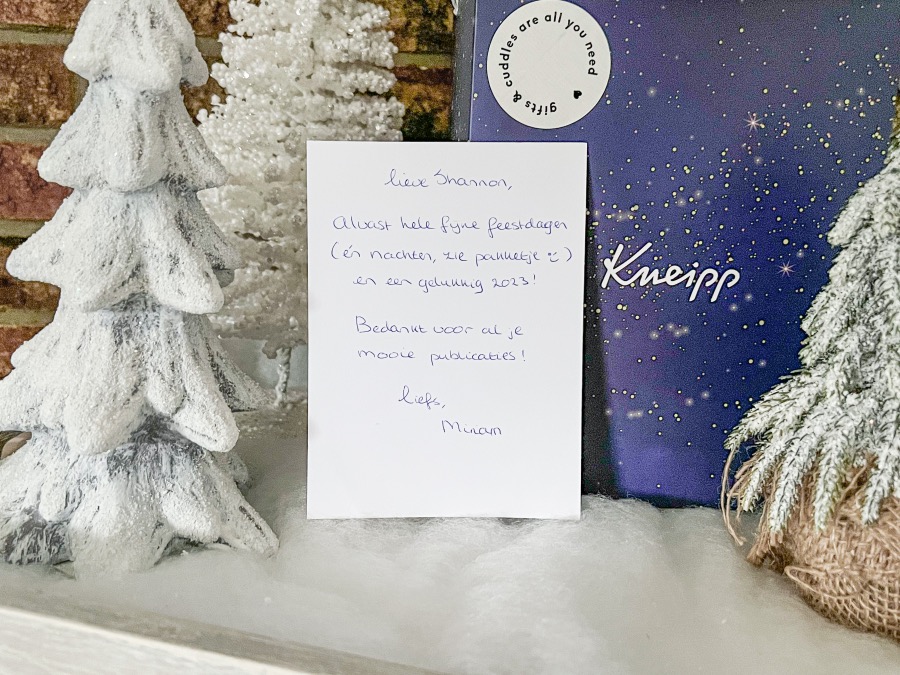 gifts & cuddles are all you need
Kneipp
lieve Shannon,
Alvast hele fijne feestdagen
(én nachten, zie pakketje :))
en een gelukkig 2023!
Bedankt voor al je
mooie publicaties!
liefs,
Miriam